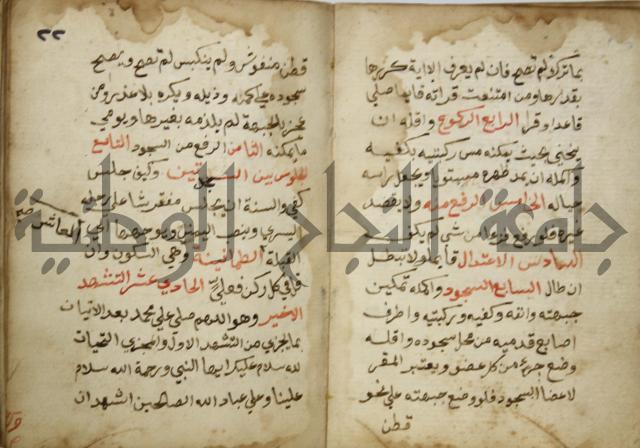 بما ترك لم تصح فان لم يعرف الا اية كررها
بقدرها ومن امتنعت قراته قايما صلى
قاعدا وقرا الرابع الركوع واقله ان
ينحني بحيث يمكنه مس ركبتيه بكفيه
واكمله ان يمد ظهره مستويا ويجعل راسه
حياله الخامس الرفع منه ولا يقصد
غيره فلو رفع من شي لم يكف
السادس الاعتدال قايما ولا تبطل
ان طال السابع السجود واكمله تمكين
جبهته وانفه وكفيه وركبتيه واطراف
اصابع قدميه من محل سجوده واقله
وضع جزء من كل عضو ويعتبر المقر
لاعضا السجود فلو وضع جبهته على نحو
قطن
٢٢
قطن منفوش ولم ينكبس لم تصح ويصح
سجوده على كمه وذيله ويكره بلا عذر ومن
عجز بالجبهة لم يلزمه بغيرها ويومي
ما يمكنه الثامن الرفع من السجود التاسع
الجلوس بين السجدتين وكيف جلس
كفى والسنة ان يجلس مفترشا على رجله
اليسرى وينصب اليمنى ويوجهها الى
القبلة العاشر صح الطمانينة وهي السكون وان
قل في كل ركن فعلي الحادي عشر التشهد
الاخير وهو اللهم صلي على محمد بعد الاتيان
بما يجزي من التشهد الاول والمجزي التحيات
لله سلام عليك ايها النبي ورحمة الله سلام
علينا وعلى عباد الله الصالحين اشهد ان
جامعة النجاح الوطنية